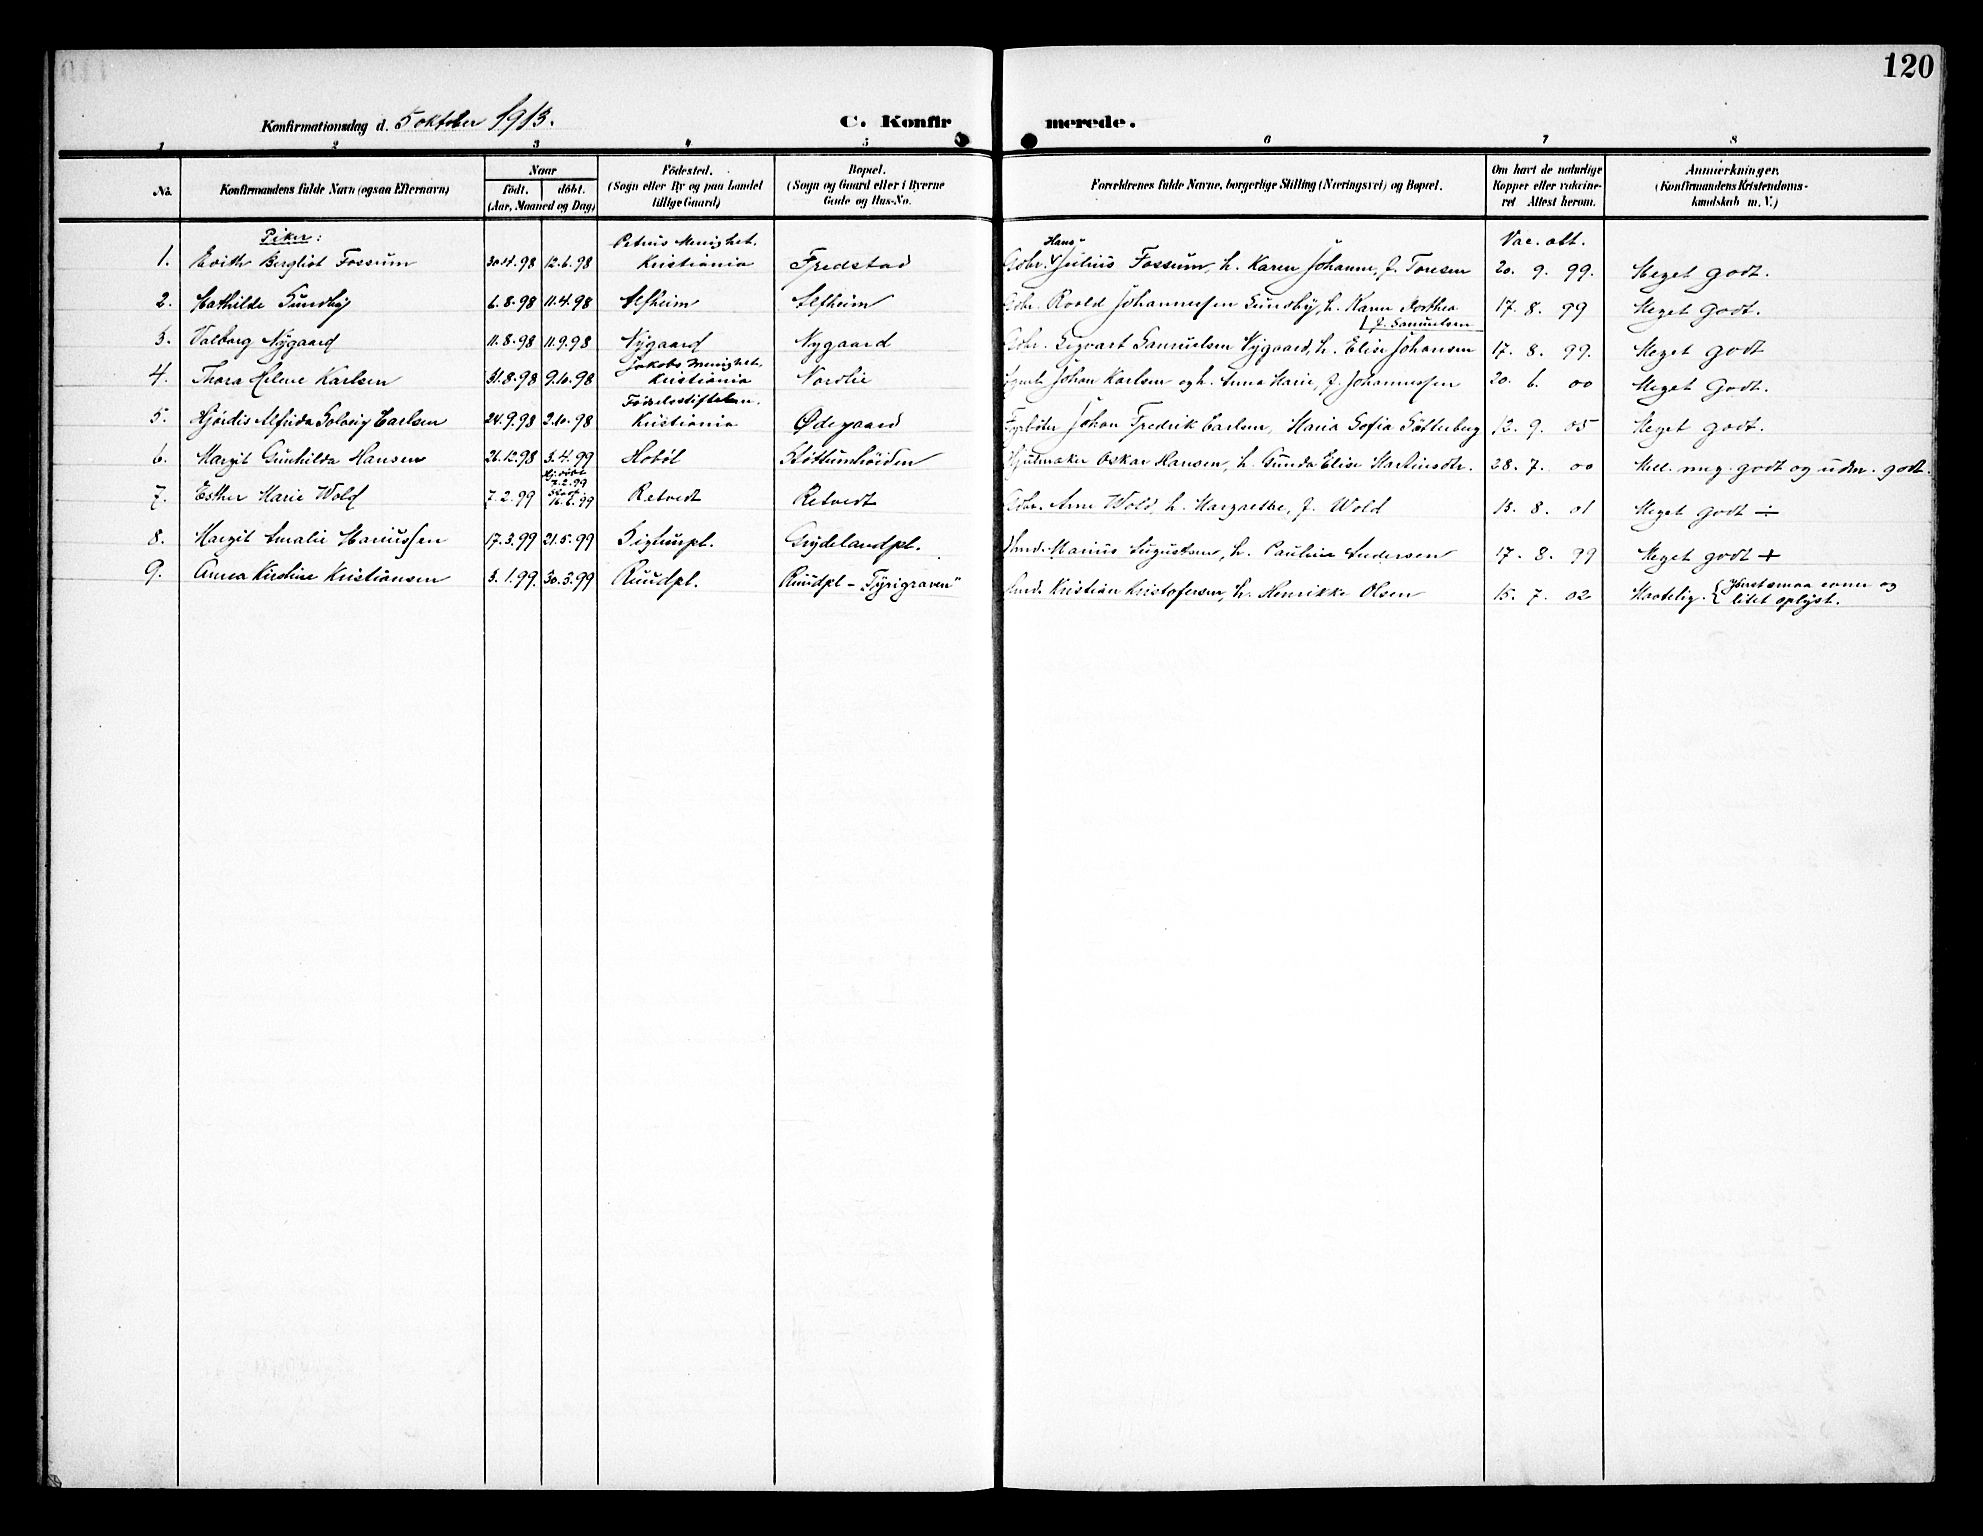 120
Konfirmationsdag d. 5 oktober 1913.
C. Konfirmerede.
1 2 3 4 5 6 7 8
No.
Konfirmandens fulde Navn (ogsaa Efternavn)
Naar
födt. döbt.
(Aar, Maaned og Dag)
Födested.
(Sogn eller By og paa Landet
tillige Gaard)
Bopæl.
(Sogn og Gaard eller i Byerne
Gade og Hus-No.
Forældrenes fulde Navne, borgerlige Stilling (Næringsvei) og Bopæl.
Om havt de naturlige
Kopper eller vaccine-
ret Attest herom.
Anmærkninger.
(Konfirmandens Kristendoms-
kundskab m. V.)
Piker:
1. Edith Bergliot Fossum 30.4.98 12.6.98 Petrus Menighet. Kristiania Fredstad Gdbr. Hans Julius Fossum, h. Karen Johanne, f. Toresen Vac. att. 20. 9. 99. Meget godt.
2. Mathilde Sundby 6.8.98 11.4.98 Alfheim Alfheim Gdbr. Roald Johannessen Sundby, h. Karen Dorthea f. Samuelsen 17. 8. 99 Meget godt.
3. Valborg Nygaard 11.8.98 11.9.98 Nygaard Nygaard Gdbr. Segvart Samuelsen Nygaard, h. Elise Johansen 17. 8. 99. Meget godt
4. Thora Helene Karlsen 31.8.98 9.10.98 Jakobs Menighet, Kristiania Nordlie Johan Karlsen og h. Anna Marie, f. Johannessen 20. 6. 00 Meget Godt.
5. Hjördis Alfrida Solveig Carlsen 24.9.98 2.10.98 Födselsstiftelsen. Kristiania Ødegaard Johan Fredrik Carlsen, Maria Sofia Sätterberg 12. 9. 05 Meget godt.
6. Margit Gunhilda Hansen 26.12.98 3.4.99 Hobøl Hjulmaker Oskar Hansen, h. Gunda Elise Martinsdtr. 28. 7. 00 Mell. meg. godt og uden. godt.
7. Esther Marie Wold 7.2.99 Hj. döbt 7.2.99 Stadf. 16.7.99 Retvedt Retvedt Gdbr. Arne Wold, h. Margrethe, f. Wold 13. 8. 01 Meget godt ÷
8. Margit Amalie Mariussen 17.3.99 21.5.99 Grydelandpl. Marius Augustsen, h. Pauline Andersen 17. 8. 99 Meget godt +
9. Anna Kirstine Kristiansen 3.1.99. 30.3.99 Ruudpl. Ruudpl – "Tyrigraven" Kristian Kristofersen, h. Henrikke Olsen 15. 7. 02 Maadelig. { Yderst smaa evner og litet oplyst.